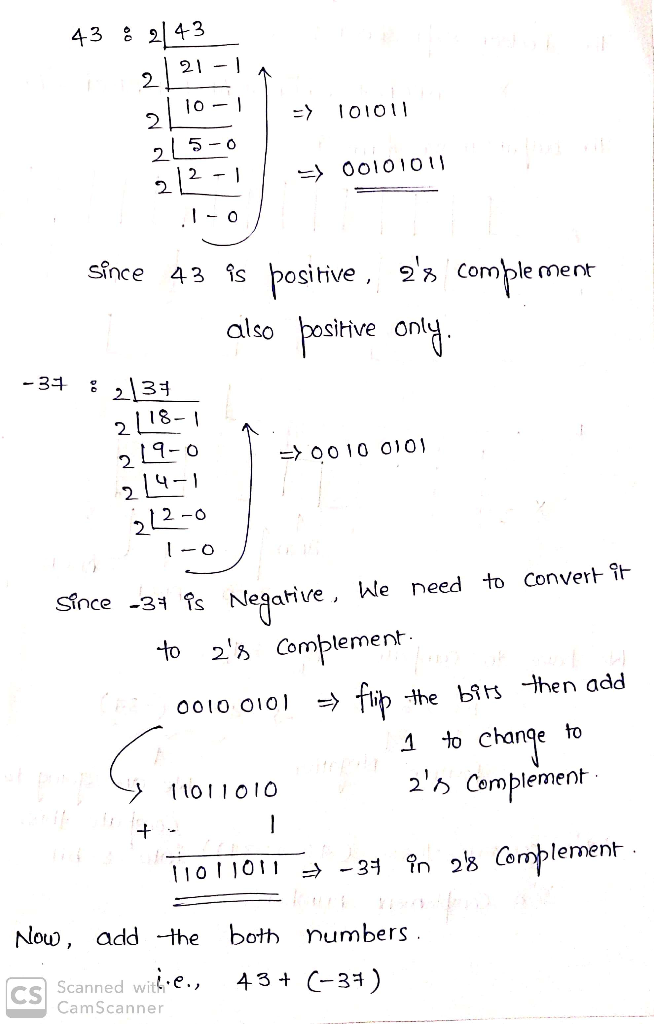 43 : 2|43
2|21-1
2|10-1 => 101011
2|5-0
2|2-1 => 00101011
.1-0
Since 43 is positive, 2's complement
also positive only.
-37 : 2|37
2|18-1
2|9-0 => 0010 0101
2|4-1
2|2-0
1-0
Since -37 is Negative, We need to convert it
to 2's complement.
0010 0101 => flip the bits then add
1 to change to
11011010 2's complement.
+ 1
11011011 => -37 in 2's complement.
Now, add the both numbers.
i.e., 43+ (-37)
CS Scanned with
CamScanner